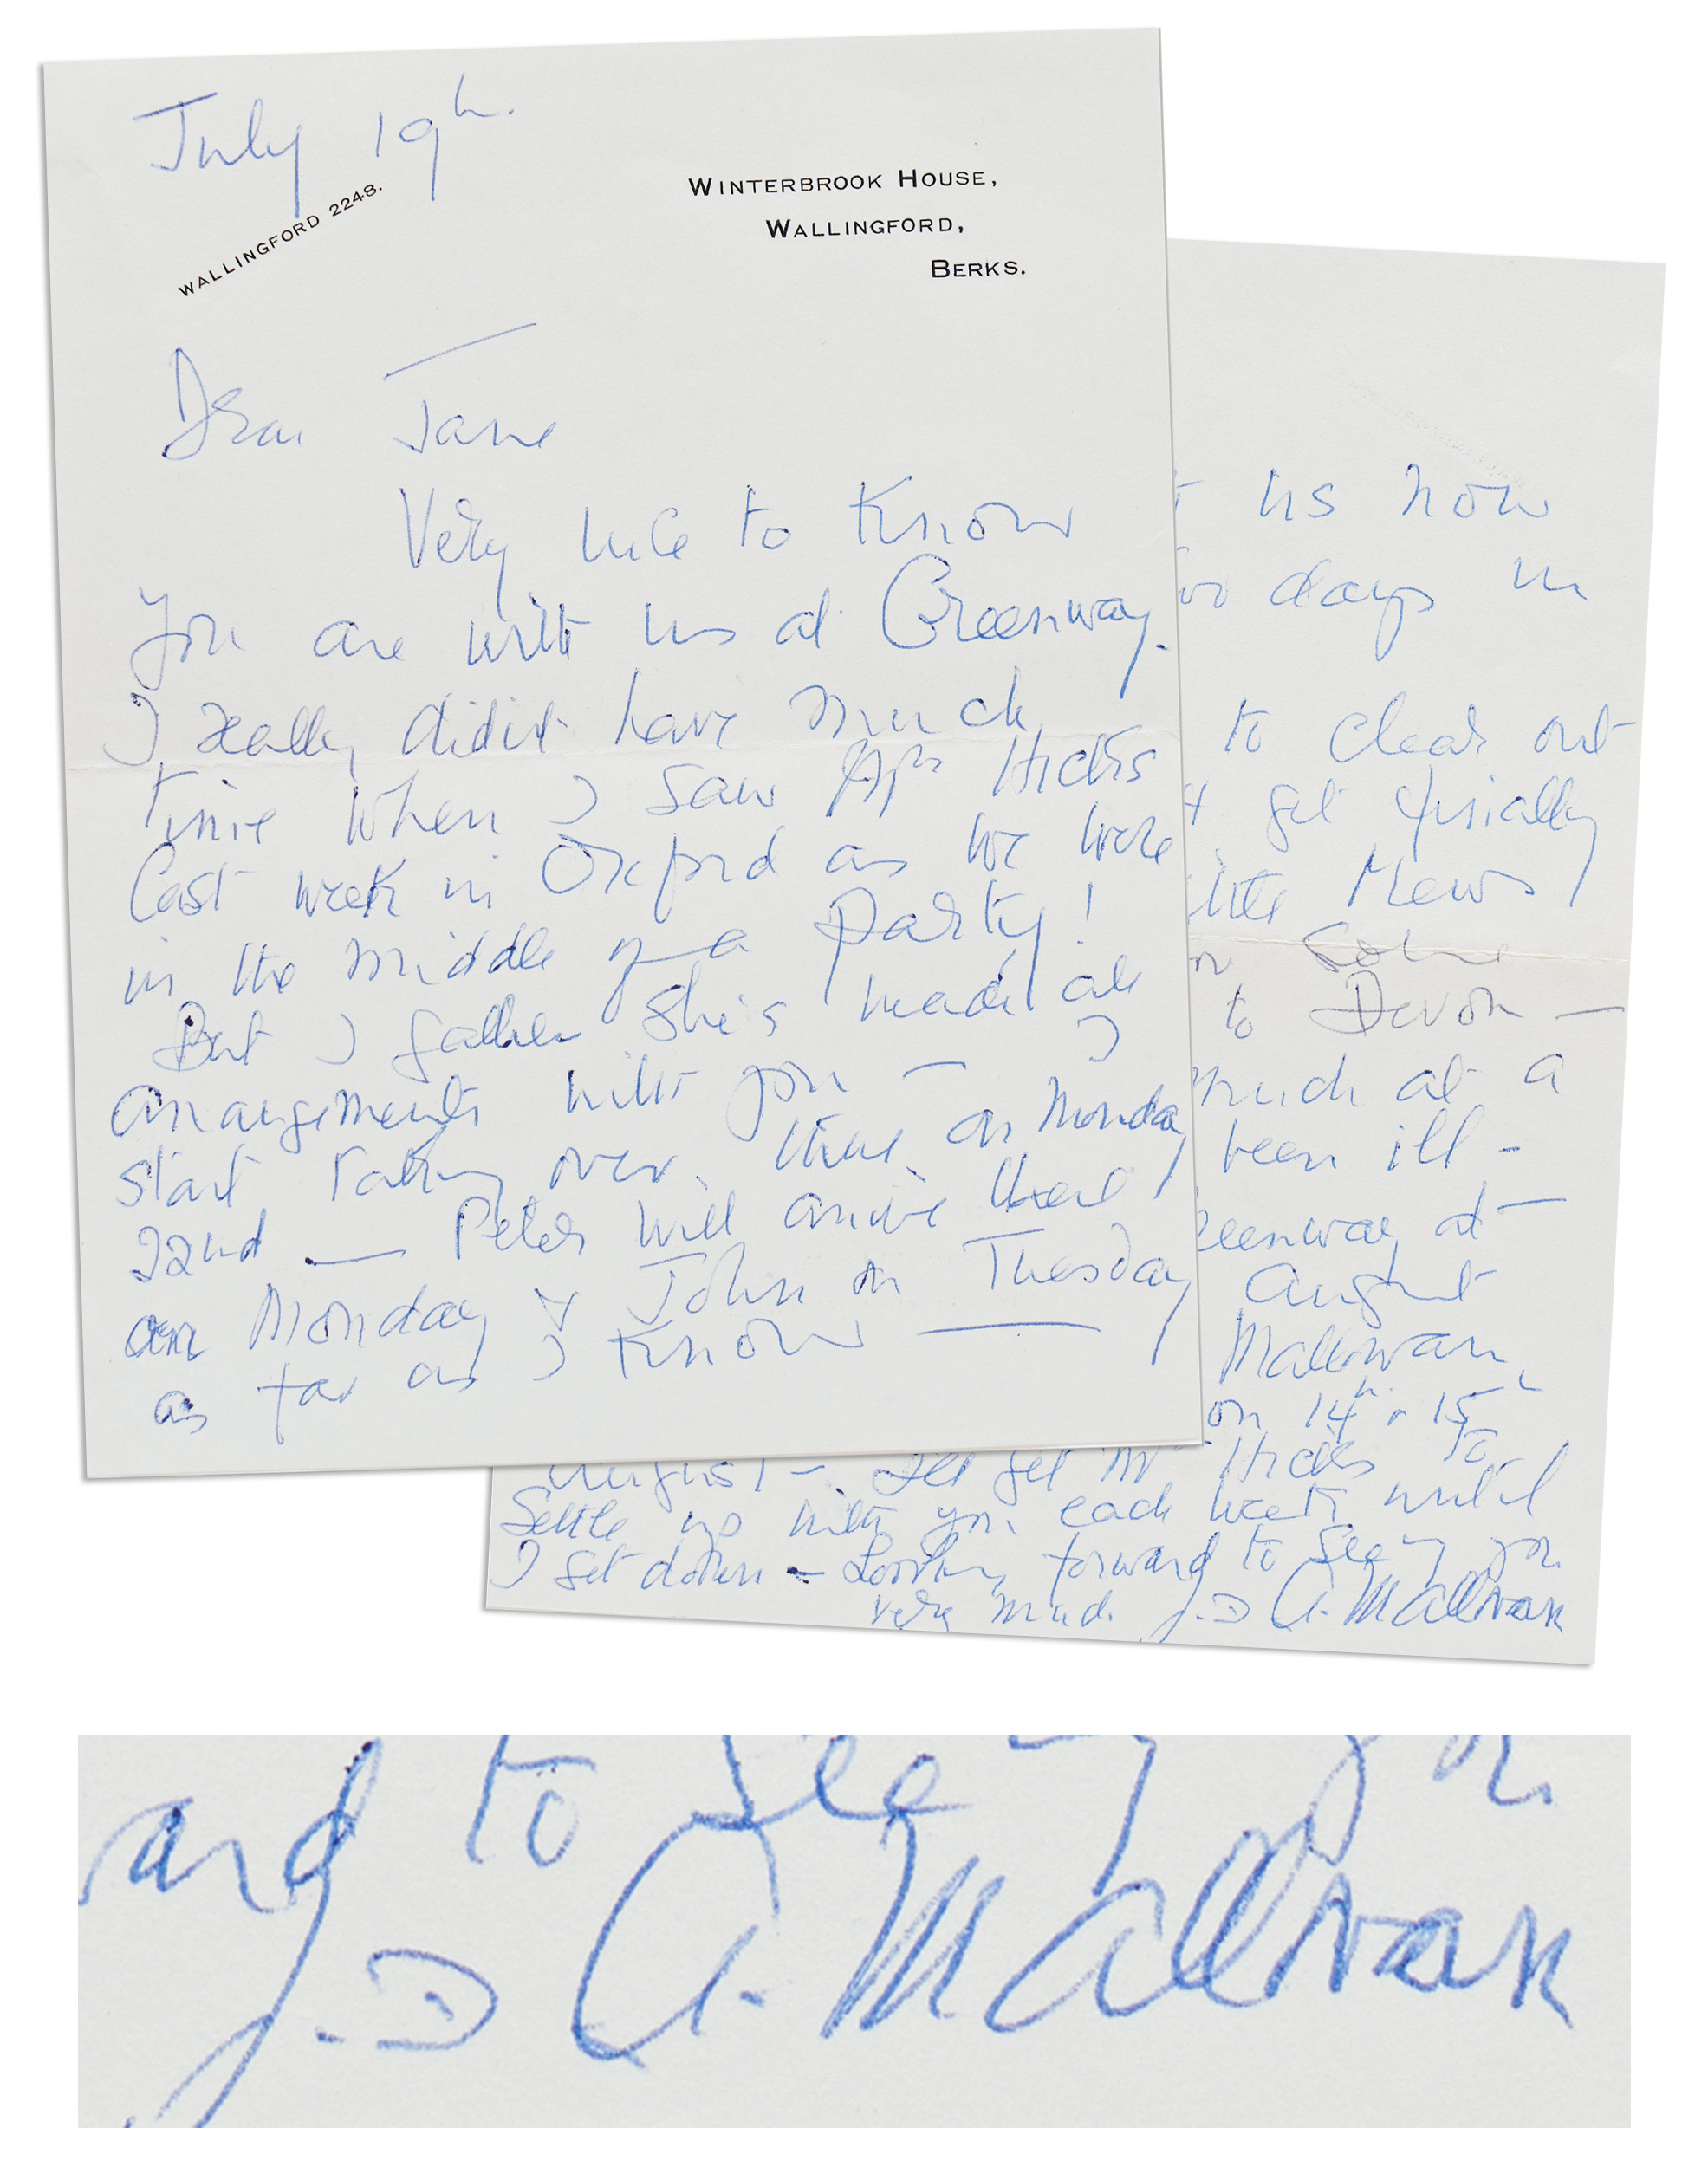 July 19th.
WALLINGFORD 2248.
WINTERBROOK HOUSE,
WALLINGFORD,
BERKS.
Dear Jane
Very nice to know
you are with us at Greenway.
I really didn't have much
time when I saw Mrs Hicks
last week in Oxford as we were
in the middle of a party!
But I gather she's made all
arrangements with you — I
start taking over there on Monday
22nd — Peter will arrive there
on Monday & John on Tuesday
as far as I know —
us now
days in
to clear out
get finially
Mews
to Devon —
much at a
been ill -
at —
August
Mallowan
on 14th or 15th
August - I'll get Mrs Hicks to
settle up with you each week until
I get down - Looking forward to seeing you
very much. A. Mallowan
ard to seeing you
A. Mallowan